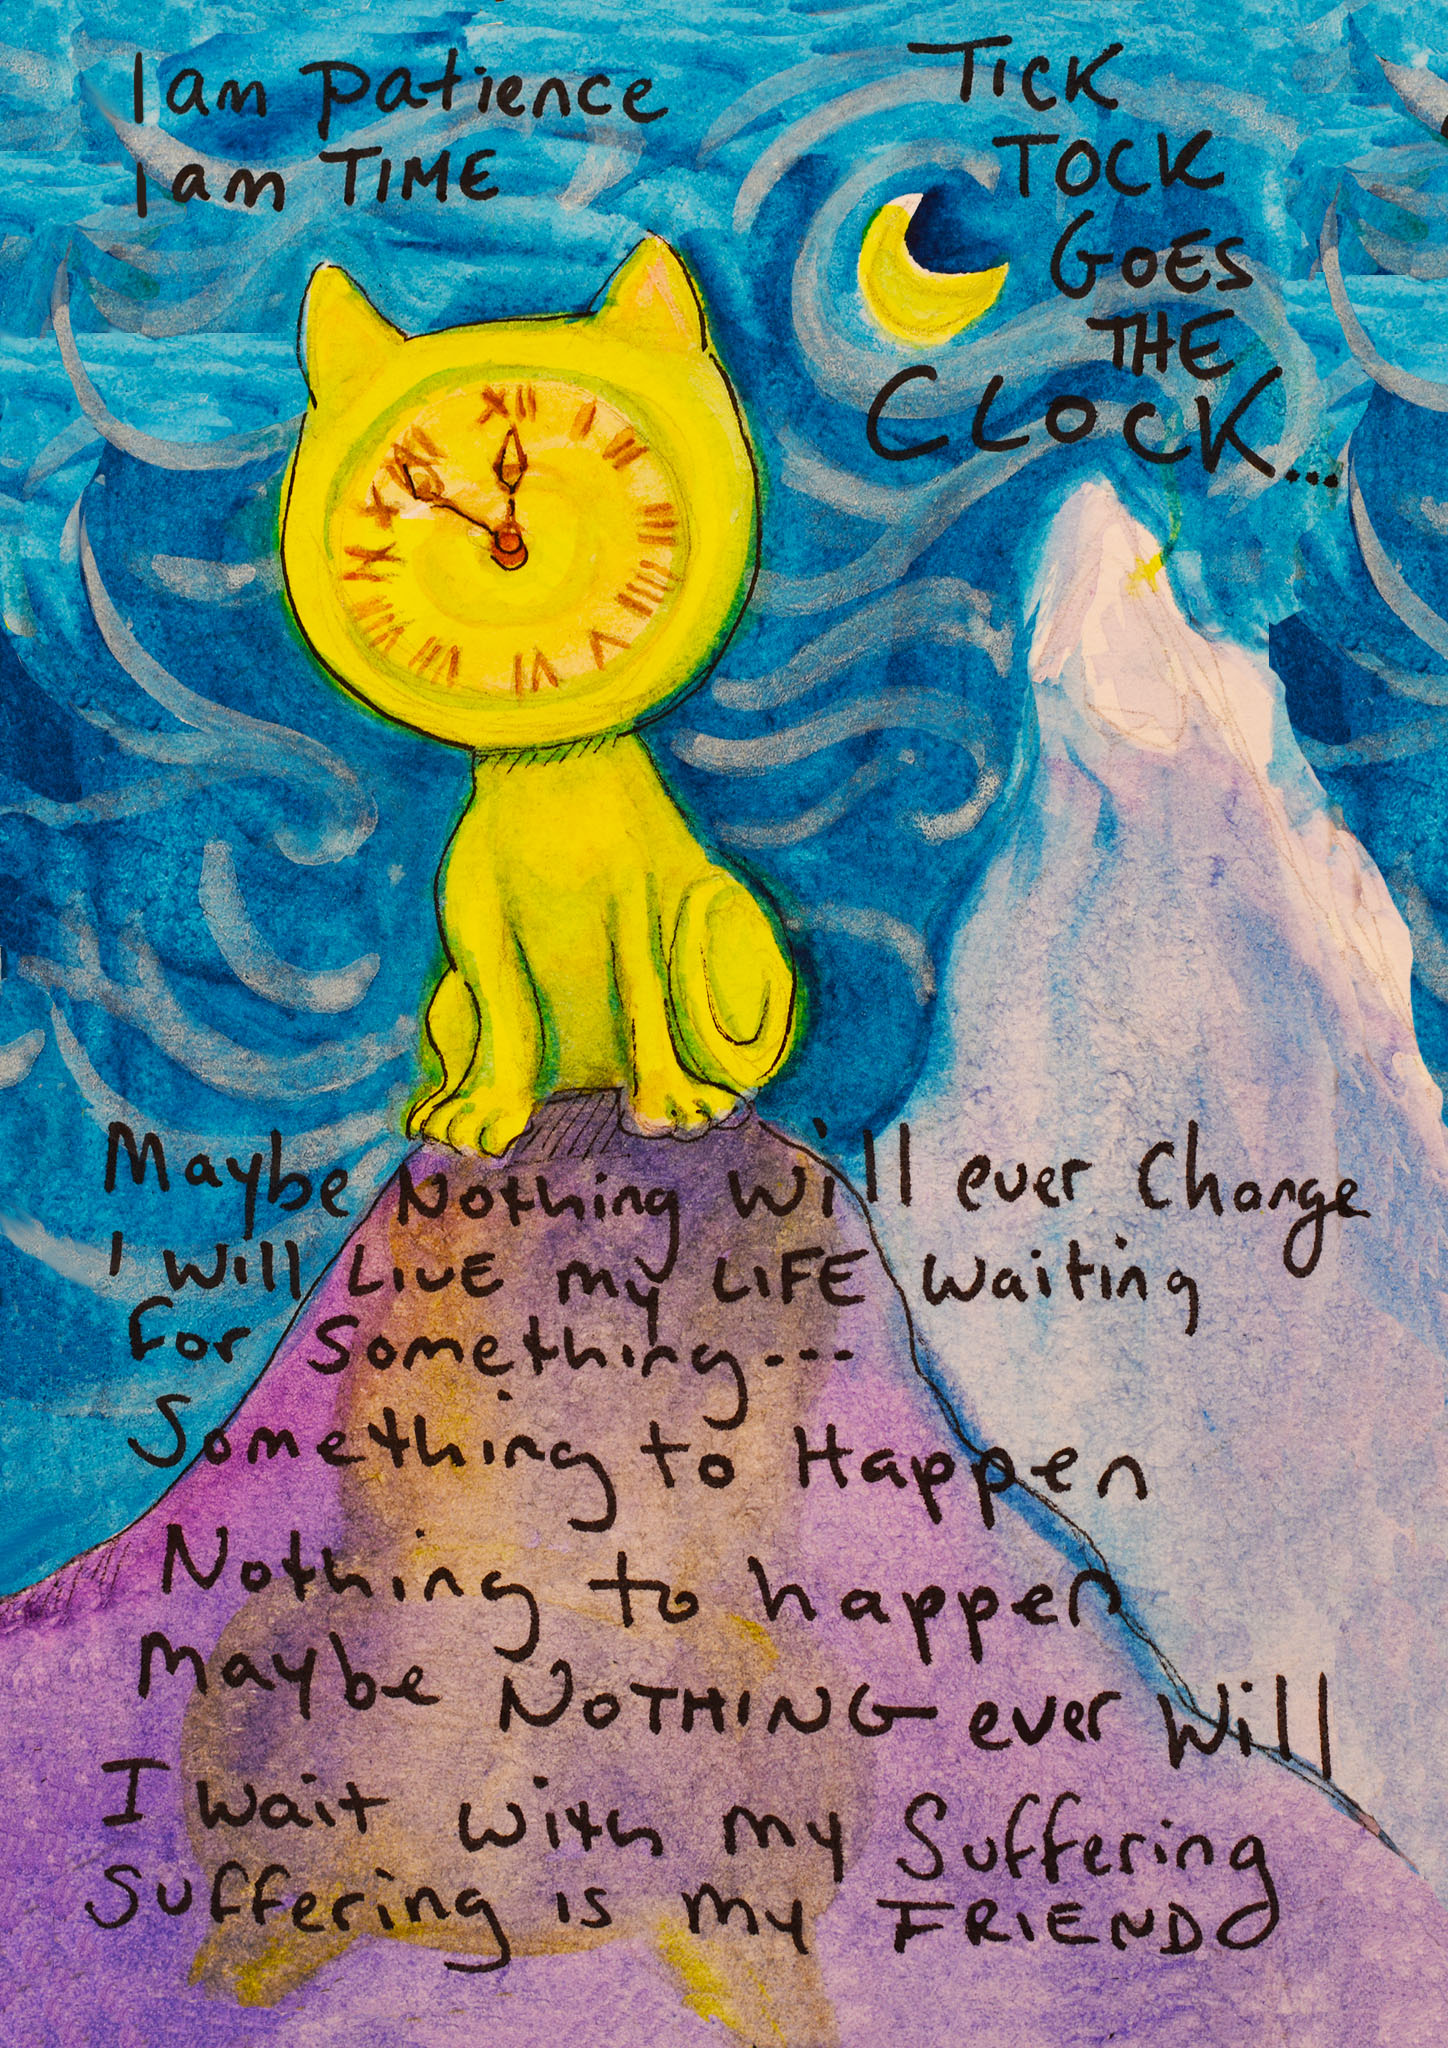 I am patience
I am TIME
TICK
TOCK
GOES
THE
CLOCK...
XII
I
II
III
IIII
V
VI
Maybe Nothing Will ever Change
I Will LIVE my LIFE waiting
For Something...
Something to Happen
Nothing to happen
Maybe NOTHING ever Will
I wait with my Suffering
Suffering is my FRIEND